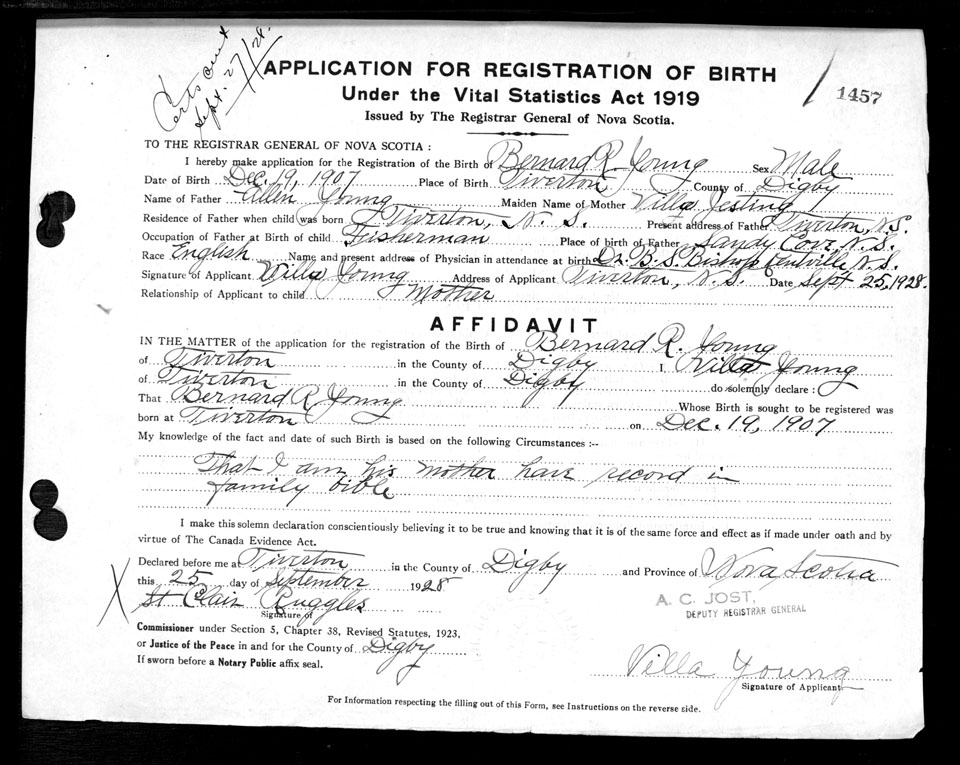 Certs sent
Sept. 27/28.
APPLICATION FOR REGISTRATION OF BIRTH
Under the Vital Statistics Act 1919
Issued by The Registrar General of Nova Scotia.
1457
TO THE REGISTRAR GENERAL OF NOVA SCOTIA :
I hereby make application for the Registration of the Birth of Bernard R. Young Sex Male
Date of Birth Dec. 19, 1907 Place of Birth Tiverton County of Digby
Name of Father Allen Young Maiden Name of Mother Villa Jesting
Residence of Father when child was born Tiverton, N. S. Present address of Father Tiverton, N.S.
Occupation of Father at Birth of child Fisherman Place of birth of Father Sandy Cove, N.S.
Race English Name and present address of Physician in attendance at birth Dr. B. S. Bishop Kentville N.S.
Signature of Applicant Villa Young Address of Applicant Tiverton, N. S. Date Sept 25, 1928.
Relationship of Applicant to child Mother
AFFIDAVIT
IN THE MATTER of the application for the registration of the Birth of Bernard R. Young
of Tiverton in the County of Digby I, Villa Young
of Tiverton in the County of Digby do solemnly declare :
That Bernard R. Young Whose Birth is sought to be registered was
born at Tiverton on Dec. 19, 1907
My knowledge of the fact and date of such Birth is based on the following Circumstances :--
That I am his mother have record in
family bible
I make this solemn declaration conscientiously believing it to be true and knowing that it is of the same force and effect as if made under oath and by
virtue of The Canada Evidence Act.
Declared before me at Tiverton in the County of Digby and Province of Nova Scotia
this 25 day of September 1928
St Clair Ruggles
Signature of
A. C. JOST,
DEPUTY REGISTRAR GENERAL
Commissioner under Section 5, Chapter 38, Revised Statutes, 1923,
or Justice of the Peace in and for the County of Digby
If sworn before a Notary Public affix seal.
Villa Young
Signature of Applicant
For Information respecting the filling out of this Form, see Instructions on the reverse side.